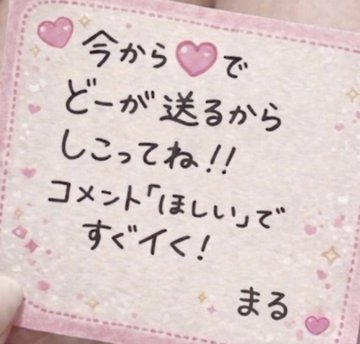 今から♡で
どーが送るから
しこってね!!
コメント「ほしい」で
すぐイく!
まる